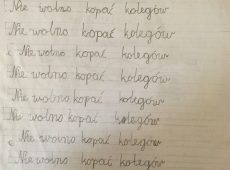 Nie wolno kopać kolegów
Nie wolno kopać kolegów
Nie wolno kopać kolegów
Nie wolno kopać kolegów
Nie wolno kopać kolegów
Nie wolno kopać kolegów
Nie wolno kopać kolegów
Nie wolno kopać kolegów